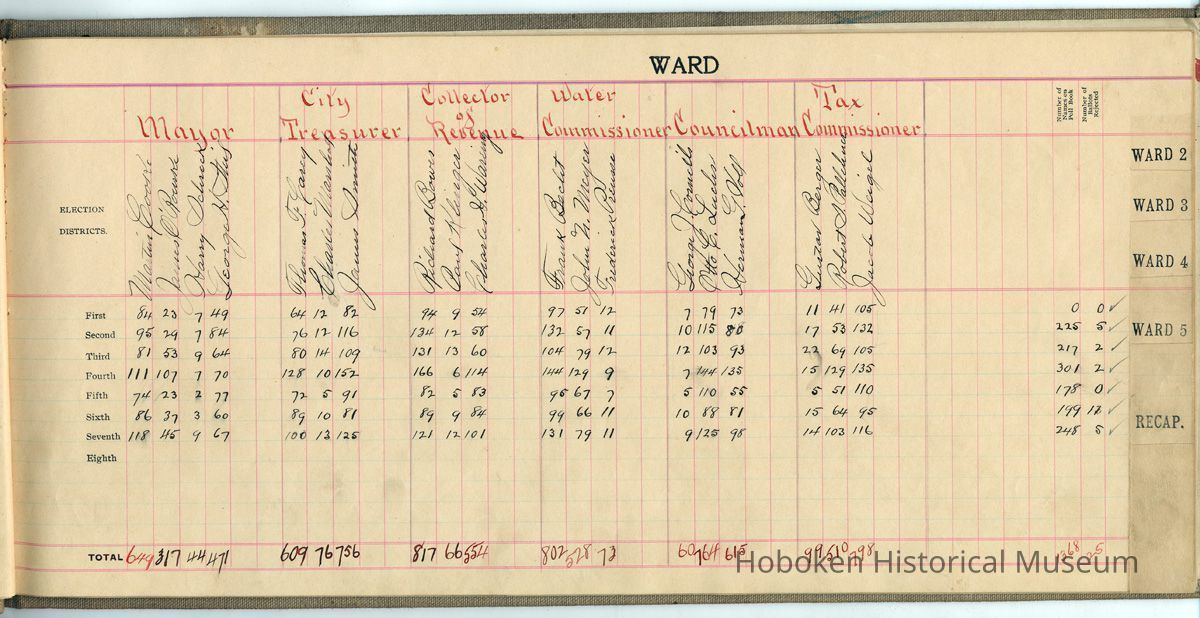 WARD
Mayor City Treasurer Collector of Revenue Water Commissioner Councilman Tax Commissioner Number of Names on Poll Book Number of Ballots Rejected
ELECTION DISTRICTS. Martin Cooke James Harry Schneck George H. Steil Thomas F. Carey Charles James Smith Richard Bowes Paul Klinger Charles Frank Bacht John N. Meyer Frederick George J. Otto C. Herman Gustav Berger Robert Jacob Weigel
First 84 23 7 49 64 12 82 94 9 54 97 51 12 7 79 73 11 41 105 0 0 ✓
Second 95 29 7 84 76 12 116 134 12 58 132 57 11 10 115 80 17 53 132 225 5 ✓
Third 81 53 9 64 80 14 109 131 13 60 104 79 12 12 103 93 22 69 105 217 2 ✓
Fourth 111 107 7 70 128 10 152 166 6 114 144 129 9 7 144 135 15 129 135 301 2 ✓
Fifth 74 23 2 77 72 5 91 82 5 83 95 67 7 5 110 55 5 51 110 178 0 ✓
Sixth 86 37 3 60 89 10 81 89 9 84 99 66 11 10 88 81 15 64 95 199 12 ✓
Seventh 118 45 9 67 100 13 125 121 12 101 131 79 11 9 125 98 14 103 116 248 5 ✓
Eighth
TOTAL 649 317 44 471 609 76 756 817 66 554 802 528 73 60 764 615 99 510 798 1368 25
WARD 2
WARD 3
WARD 4
WARD 5
RECAP.
Hoboken Historical Museum